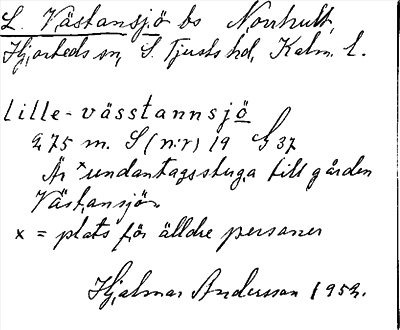 L. Västansjö bs Norrhult,
Hjorteds sn, S. Tjusts hd, Kalm. l.
Lille-västtannsjö
2,75 m. S (n:r) 19 G 37
Är ˣundantagsstuga till gården
Västansjö
x = plats för älldre personer
Hjalmar Andersson 1952.